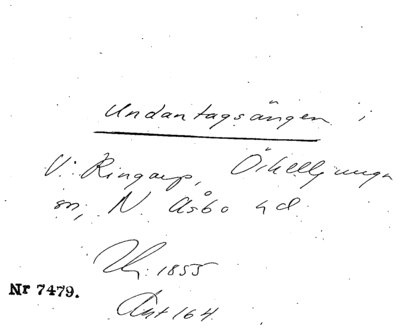 Undantagsängen i
V. Ringarp, Örkelljunga
sn, N. Åsbo hd
Nr 7479.
Akt 164.